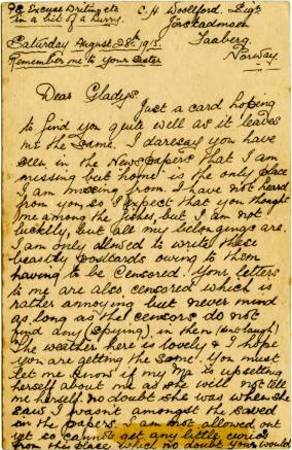 PS Excuse Writing etc
in a bit of a hurry.
C. H. Woollford. Sig
Jörstadmoen
Faaberg.
Norway.
Saturday August 28th 1915.
Remember me to Your Sister
Dear Gladys
Just a card hoping
to find you quite well as it leaves
me the same. I daresay you have
seen in the Newspapers that I am
missing but home is the only place
I am missing from. I have not heard
from you, so I expect that you thought
me among the fishes, but I am not
luckily, but all my belongings are.
I am only allowed to write these
beastly postcards owing to them
having to be Censored. Your letters
to me are also censored which is
rather annoying but never mind
as long as the censors do not
find any (Spying) in them (dont laugh)
The weather here is lovely & I hope
you are getting the same. You must
let me know if my Ma is upsetting
herself about me as she will not tell
me herself. no doubt she was when she
saw I wasn't amongst the saved
in the papers. I am not allowed out
yet so cannot get any little curios
from this place which no doubt you would